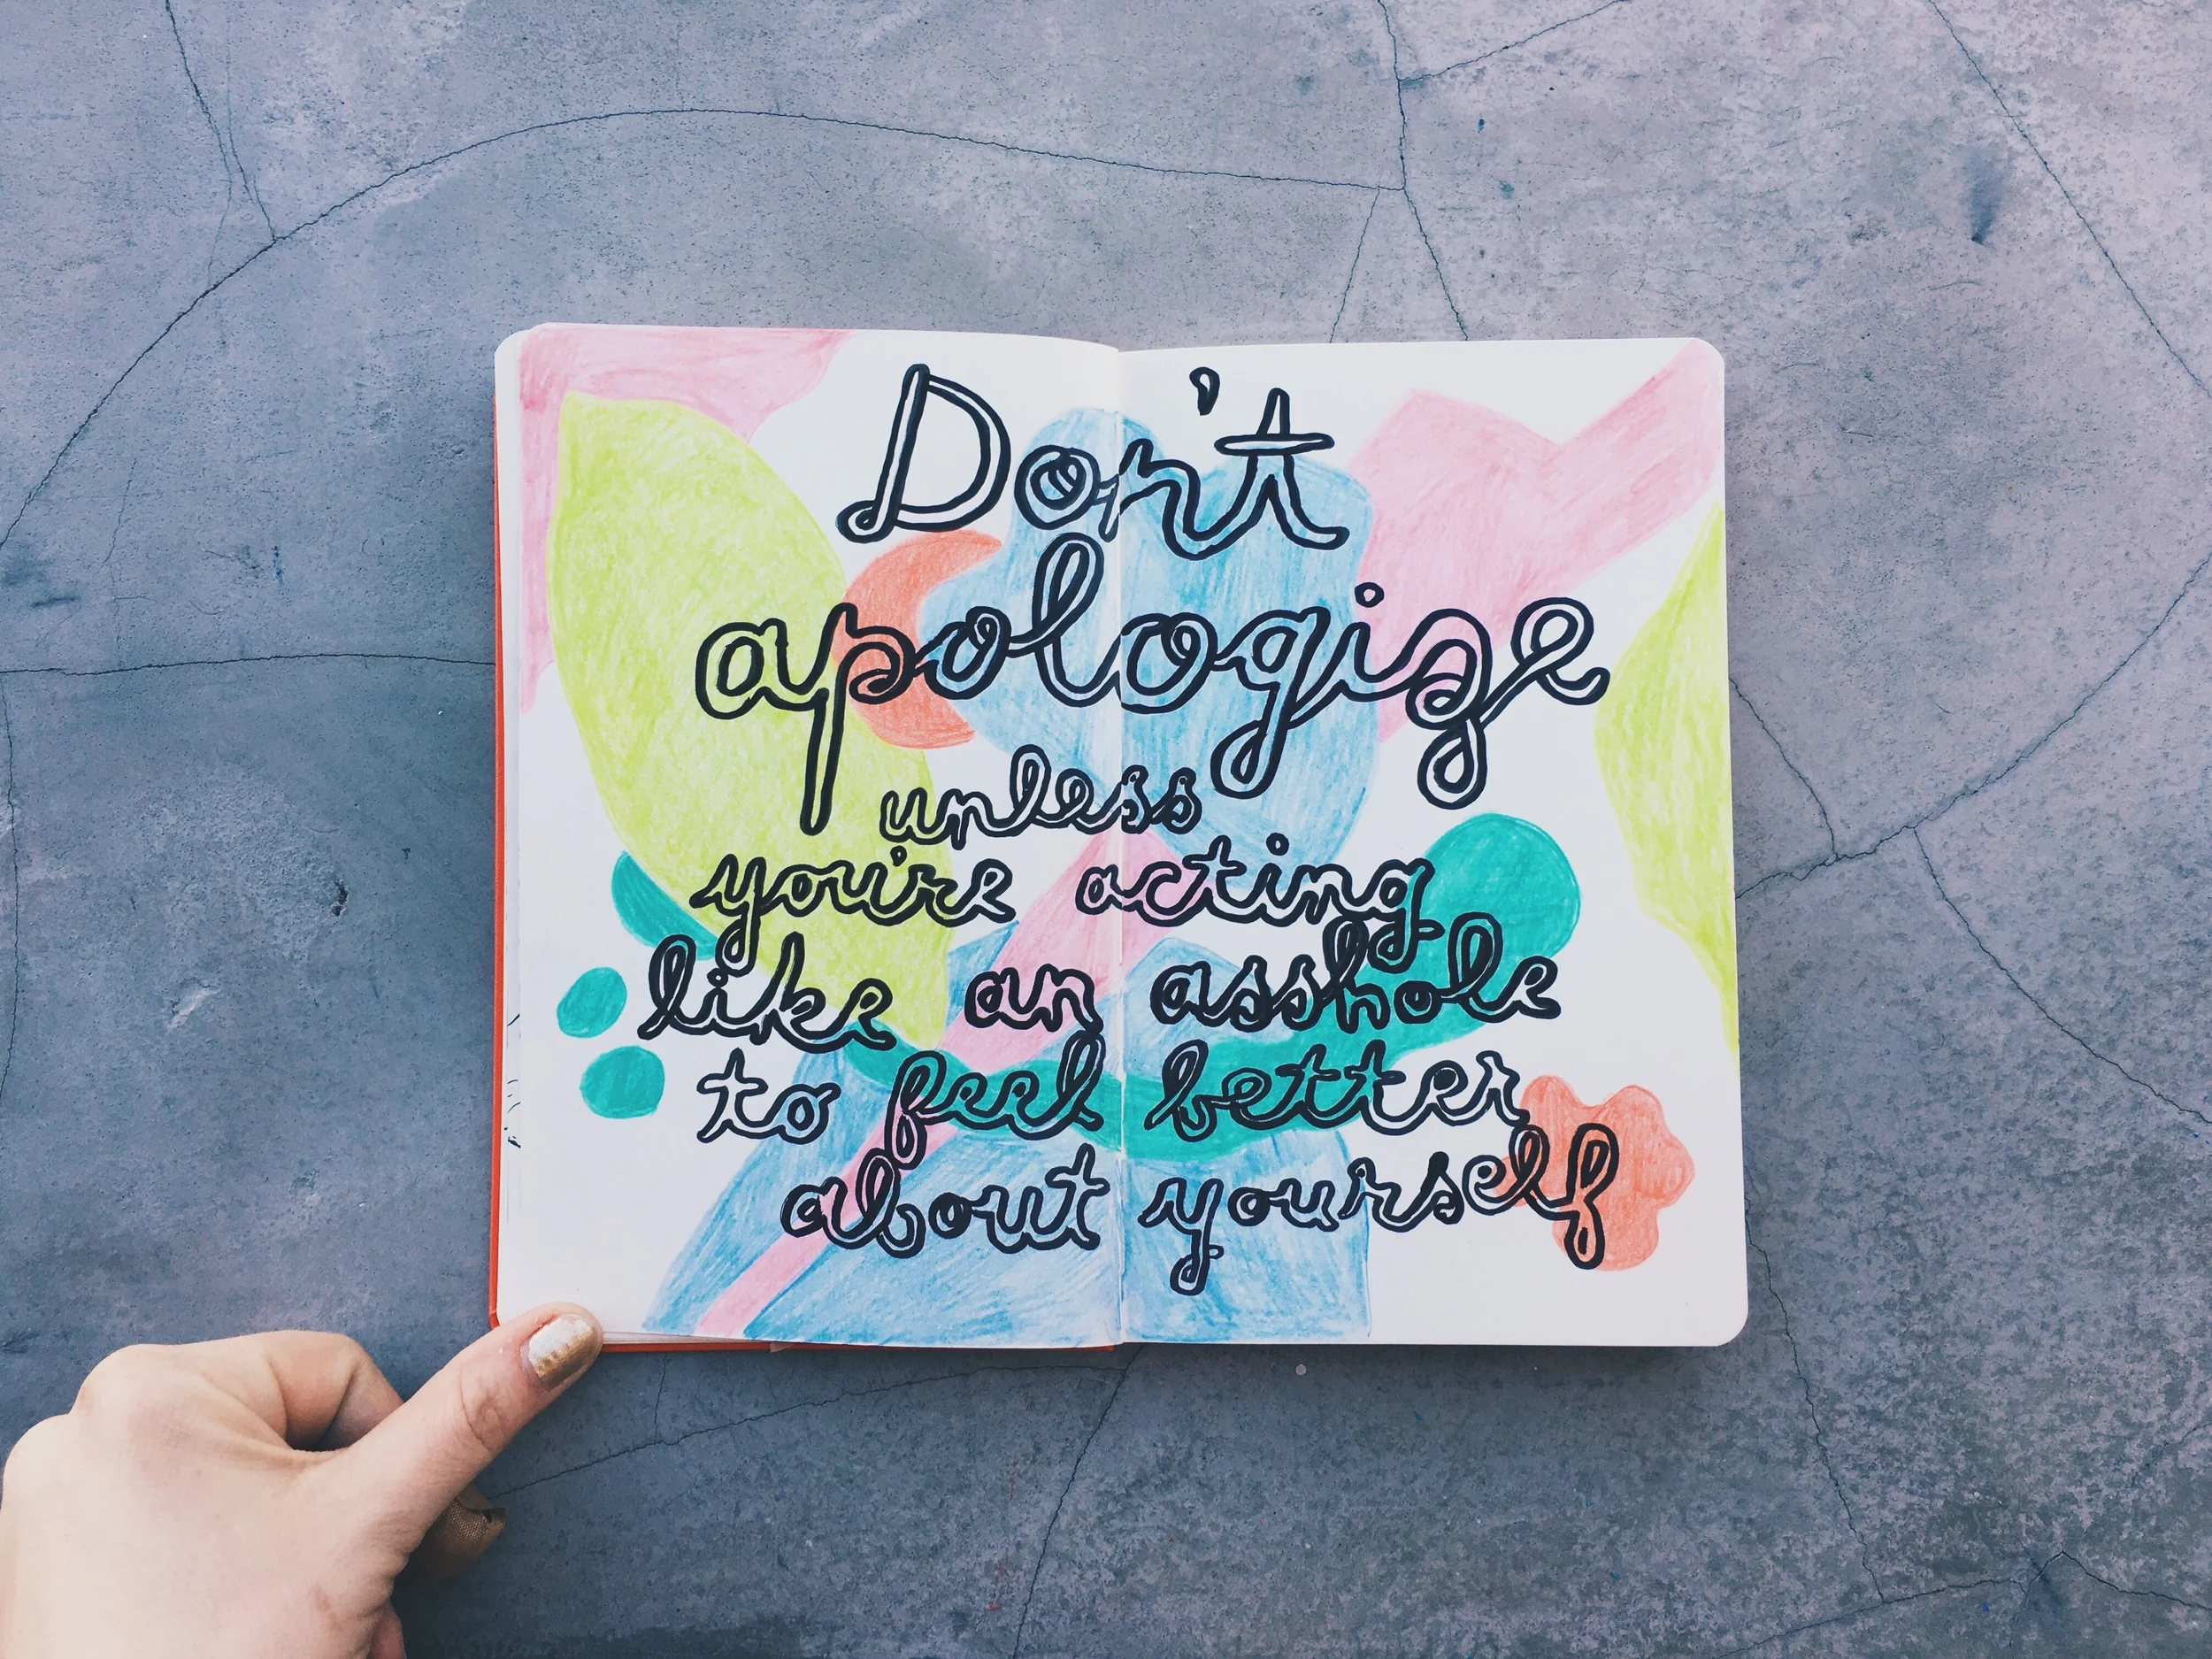 Don't
apologize
unless
you're acting
like an asshole
to feel better
about yourself